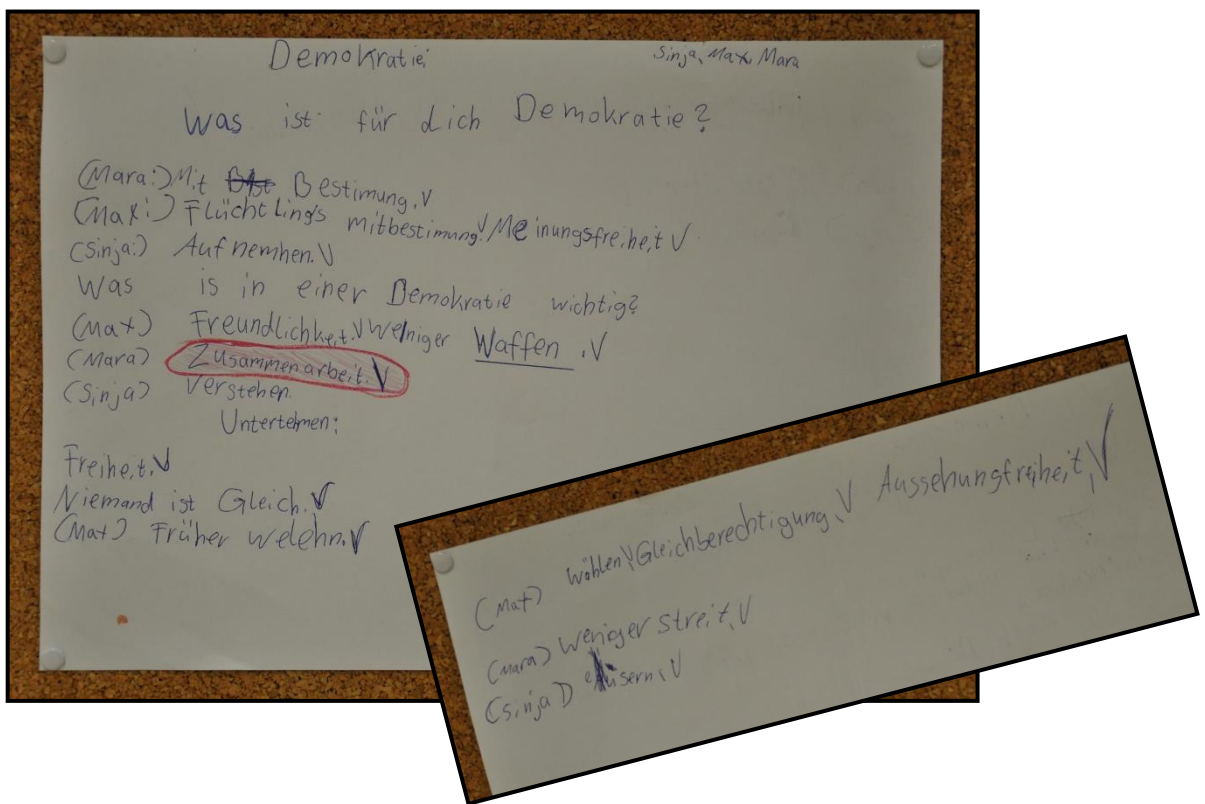 Demokratie:
Sinja, Max, Mara
Was ist für dich Demokratie?
(Mara:) Mit Bestimung. √
(Max:) Flüchtlings mitbestimung √ Meinungsfreiheit √
(Sinja:) Aufnemhen. √
Was is in einer Demokratie wichtig?
(Max) Freundlichkeit. √ Weniger Waffen. √
(Mara) Zusammenarbeit. √
(Sinja) Verstehen.
Freiheit. √
Niemand ist Gleich. √
(Max) Früher welehn. √
(Max) Wählen √ Gleichberechtigung √ Aussehungfreiheit, √
(Mara) Weniger Streit, √
(Sinja)